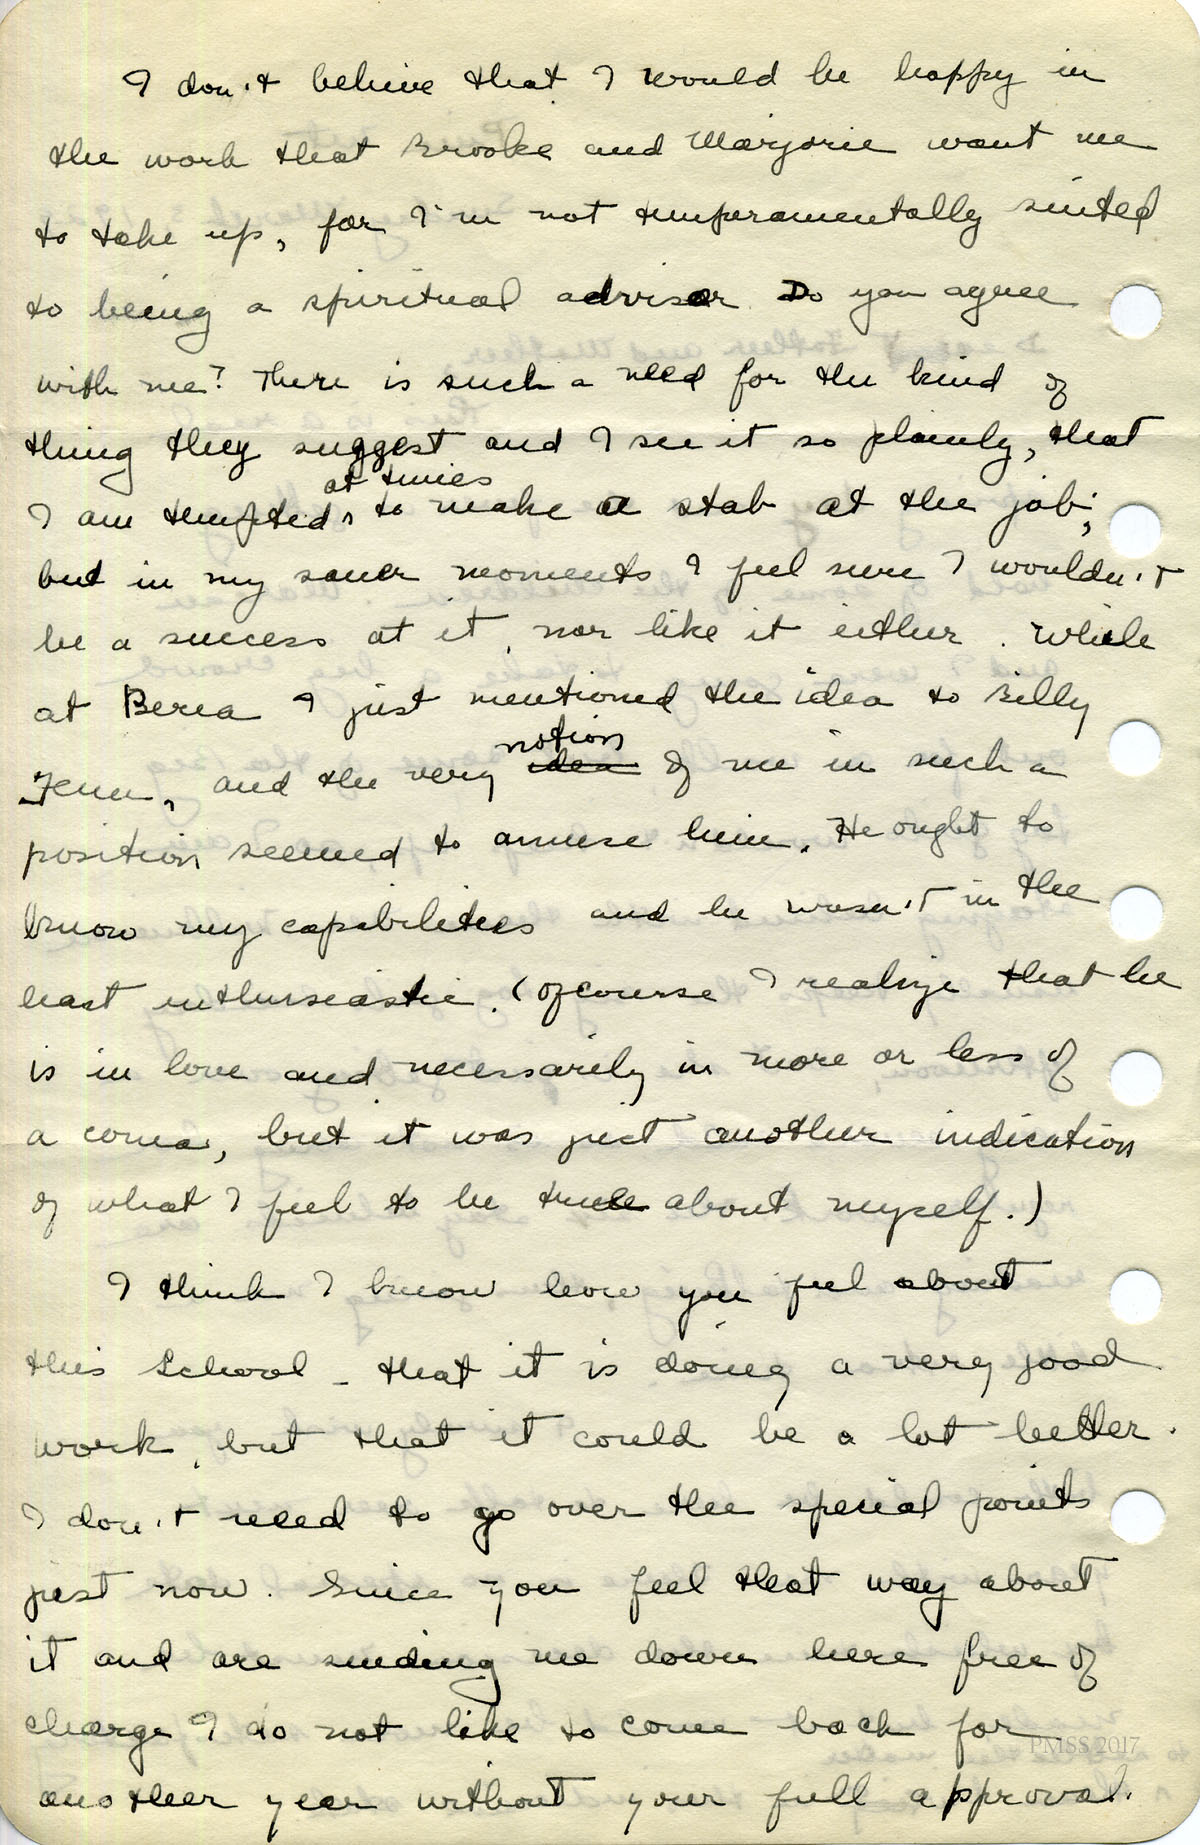 I don't believe that I would be happy in
the work that Brooke and Marjorie want me
to take up, for I'm not temperamentally suited
to being a spiritual advisor Do you agree
with me? There is such a need for the kind of
thing they suggest and I see it so plainly, that
at times
I am tempted, to make a stab at the job;
but in my saner moments I feel sure I wouldn't
be a success at it, nor like it either. While
at Berea I just mentioned the idea to Billy
notion
and the very idea of me in such a
position seemed to amuse him. He ought to
know my capabilities and he wasn't in the
least enthusiastic. (Of course I realize that he
is in love and necessarily in more or less of
a coma, but it was just another indication
of what I feel to be true about myself.)
I think I know how you feel about
this School - that it is doing a very good
work, but that it could be a lot better.
I don't need to go over the special points
just now. Since you feel that way about
it and are sending me down here free of
charge I do not like to come back for
another year without your full approval.
PMSS 2017